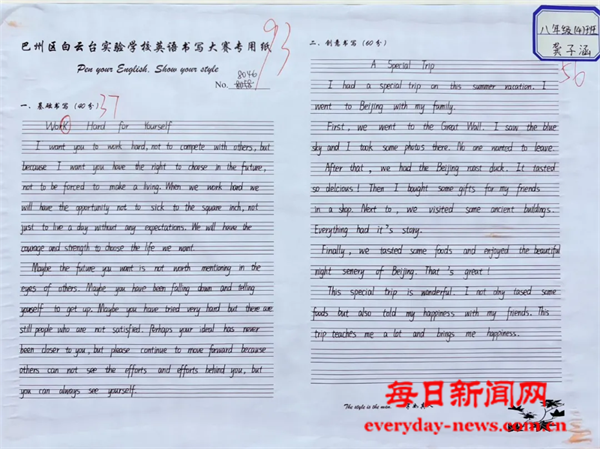 巴州区白云台实验学校英语书写大赛专用纸
Pen your English, Show your style
No. 8046
93
一、基础书写（40分）37
Work Hard for Yourself
I want you to work hard, not to compete with others, but
because I want you have the right to choose in the future,
not to be forced to make a living. When we work hard we
will have the opportunity not to sick to the square inch, not
just to live a day without any expectations. We will have the
courage and strength to choose the life we want.
Maybe the future you want is not worth mentioning in the
eyes of others. Maybe you have been falling down and telling
yourself to get up. Maybe you have tried very hard but there are
still people who are not satisfied. Perhaps your ideal has never
been closer to you, but please continue to move forward because
others can not see the efforts and efforts behind you, but
you can always see yourself.
八年级(4)班
子涵
二、创意书写（60分）
56
A Special Trip
I had a special trip on this summer vacation. I
went to Beijing with my family.
First, we went to the Great Wall. I saw the blue
sky and I took some photos there. No one wanted to leave.
After that, we had the Beijing roast duck. It tasted
so delicious! Then I bought some gifts for my friends
in a shop. Next to, we visited some ancient buildings.
Everything had it's story.
Finally, we tasted some foods and enjoyed the beautiful
night senery of Beijing. That's great!
This special trip is wonderful. I not only tased some
foods but also told my happiness with my friends. This
trip teaches me a lot and brings me happiness.
The style is the man.
每日新闻网
everyday-news.com.cn